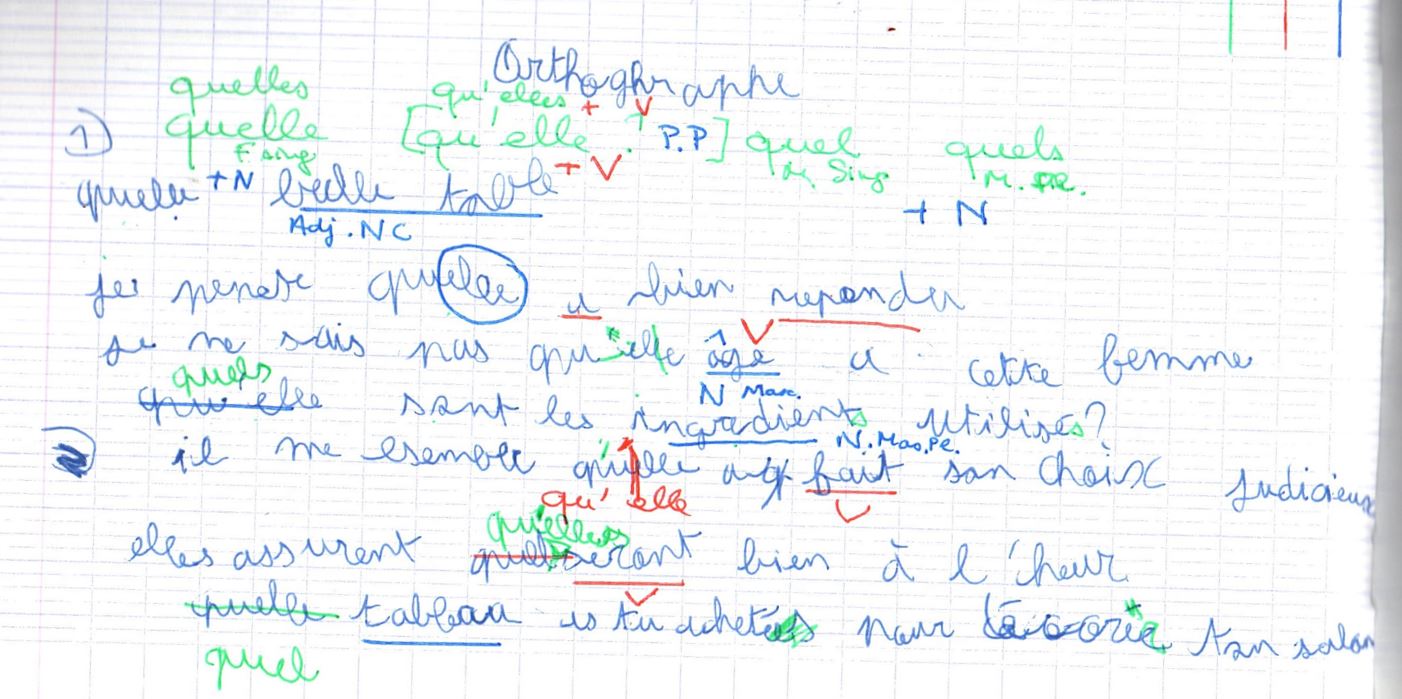 Orthoghraphe
quelles qu'elles + V
1) quelle [qu'elle ? P.P] quel quels
F sing + V M. Sing M. PL.
quelle + N belle table + N
Adj. NC
je pense quelle a bien reponder
V
je ne sais pas qu'elle âge a cette femme
quels N Mas.
qu'elle sont les ingrédients utilisés?
N. Mas. PL.
2 il me esemble qu'elle a fait son choix judicieux
qu'elle V
qu'elles
elles assurent quel seront bien à l'heur
V
quelle tableau as tu achetés pour ton salon
quel